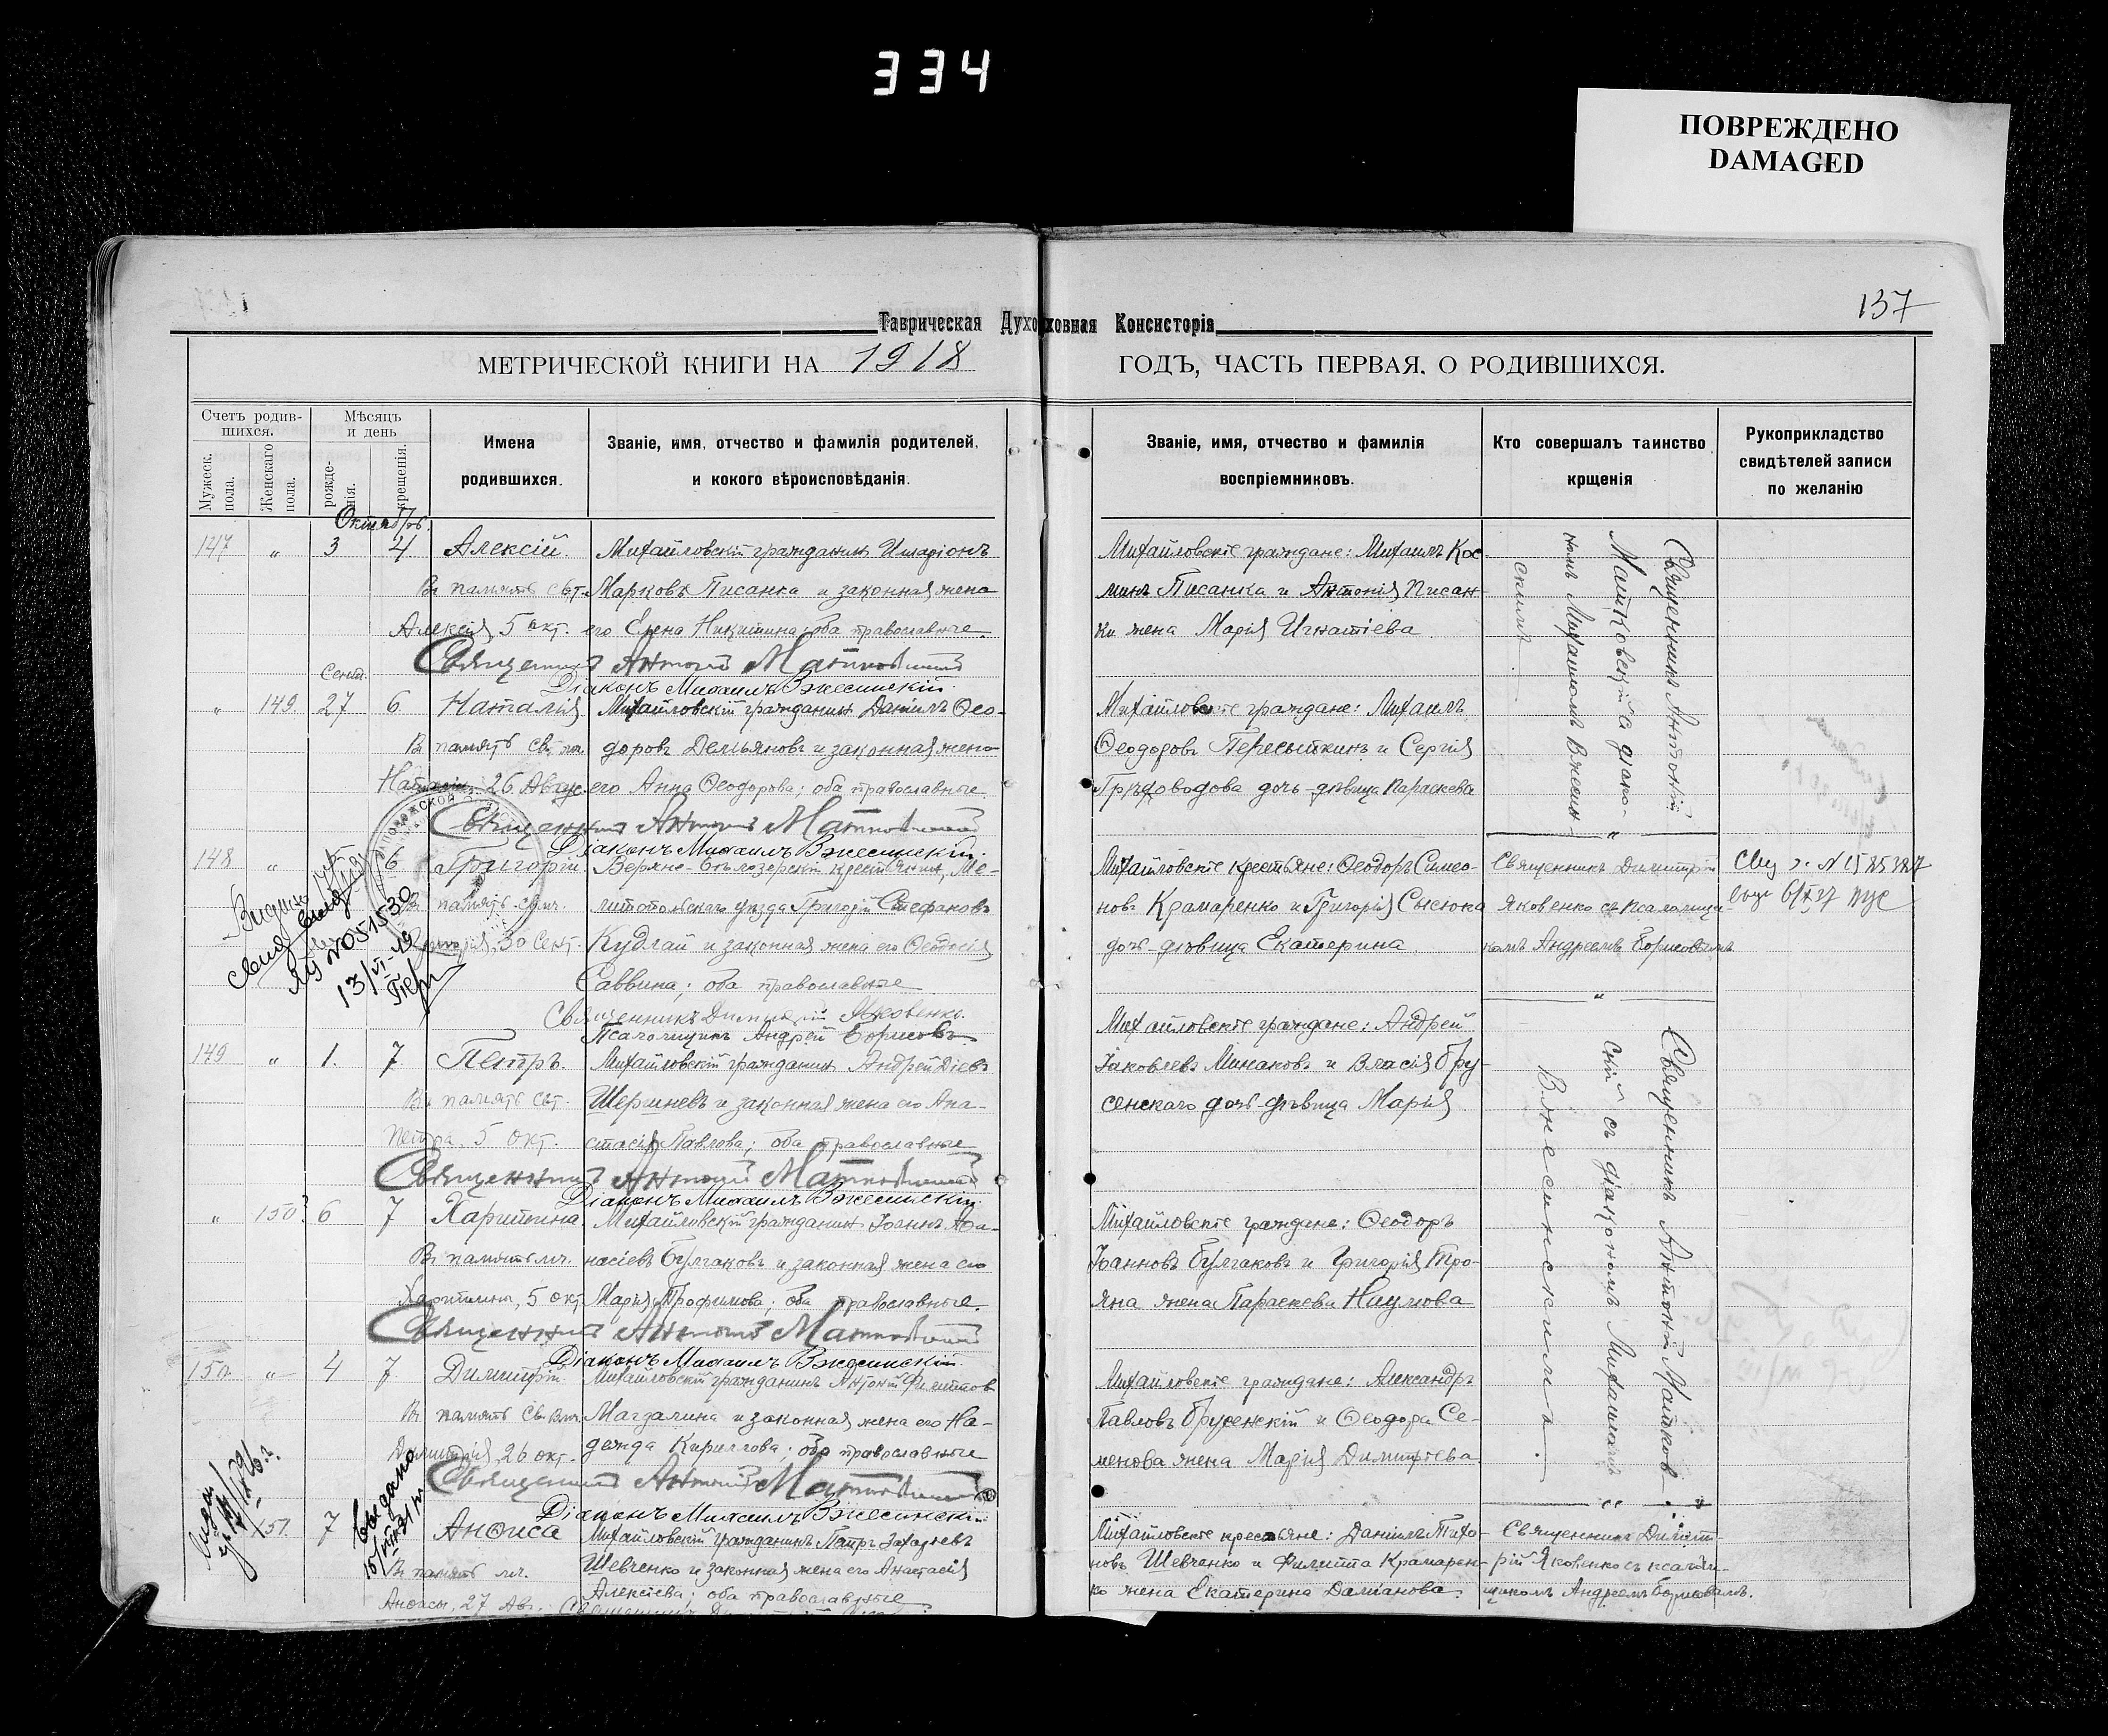 334
ПОВРЕЖДЕНО
DAMAGED
137
Таврическая Духо ховная Консисторія
МЕТРИЧЕСКОЙ КНИГИ НА 1918 ГОДЪ, ЧАСТЬ ПЕРВАЯ, О РОДИВШИХСЯ.
Счетъ родившихся.
Мужеск. пола.
Женскаго пола.
Мѣсяцъ и день
рожденія.
крещенія.
Имена родившихся.
Званіе, имя, отчество и фамилія родителей, и кокого вѣроисповѣданія.
Званіе, имя, отчество и фамилія воспріемниковъ.
Кто совершалъ таинство крщенія
Рукоприкладство свидѣтелей записи по желанію
Октябрь.
147 " 3 4 Алексій. Михайловскій гражданинъ Иларіонъ
Въ память свт. Марковъ Писанка и законная жена
Алексія, 5 окт. его Елена Никитина; оба православные
Священникъ Антоній Матковскій
Діаконъ Михаилъ Вжесинскій.
Михайловскіе граждане: Михаилъ Кос-
минъ Писанка и Антонія Писан-
ки жена Марія Игнатіева
Священникъ Антоній
Матковскій с діако-
номъ Михаиломъ Вжесин-
скимъ.
Сент.
" 149. 27 6 Наталія Михайловскій гражданинъ Даніилъ Ѳео-
Въ память св. мч. доровъ Демьяновъ и законная жена
Наталіи 26 Авгус. его Анна Ѳеодорова; оба православные.
Священникъ Антоній Матковскій
Діаконъ Михаилъ Вжесинскій.
Михайловскіе граждане: Михаилъ
Ѳеодоровъ Пересыпкинъ и Сергія
дочь-дѣвица Параскева
148 " 6 Григорій Верхне-Бѣлозерскій крестьянинъ, Ме-
Въ память св. мч. литопольскаго уѣзда Григорій Стефановъ
Григорія, 30 Сент. Кудлай и законная жена его Ѳеодосія
Саввина; оба православные
Священникъ Димитрій Яковенко.
Псаломщикъ Андрей Борисовъ.
Михайловскіе крестьяне: Ѳеодоръ Симео-
новъ Крамаренко и Григорія Сысюка
дочь-дѣвица Екатерина.
Священникъ Димитрій
Яковенко съ псаломщи-
комъ Андреемъ Борисовымъ
№ 051530
13/VI-19
149 " 1. 7 Петръ. Михайловскій гражданинъ Андрей Діевъ
Въ память свт. Шершневъ и законная жена его Ана-
Петра, 5 окт. стасія Павлова; оба православные
Священникъ Антоній Матковскій
Діаконъ Михаилъ Вжесинскій.
Михайловскіе граждане: Андрей
Іаковлевъ Минаковъ и Власія Бру-
сенскаго дочь-дѣвица Марія
Священникъ Антоній Матков-
скій съ діакономъ Михаиломъ
Вжесинскимъ.
" 150. 6 7 Харитина Михайловскій гражданинъ Іоаннъ Аѳа-
Въ память мч. насіевъ Булгаковъ и законная жена его
Харитины, 5 окт. Марія Трофимова; оба православные.
Священникъ Антоній Матковскій
Діаконъ Михаилъ Вжесинскій.
Михайловскіе граждане: Ѳеодоръ
Іоанновъ Булгаковъ и Григорія Тро-
яна жена Параскева Наумова
150. " 4 7 Димитрій. Михайловскій гражданинъ Антоній Филиповъ
Въ память св. влмч. Магдалина и законная жена его На-
Димитрія, 26 окт. дежда Кириллова; оба православные
Священникъ Антоній Матковскій
Діаконъ Михаилъ Вжесинскій
Михайловскіе граждане: Александръ
Павловъ Брусенскій и Ѳеодора Се-
менова жена Марія Димитріева
Выдано
151. 7 Анѳиса Михайловскій гражданинъ Петръ Захарьевъ
Въ память мч. Шевченко и законная жена его Анастасія
Анѳисы, 27 Авг. Алексіева; оба православные
Михайловскіе крестьяне: Даніилъ Тихо-
новъ Шевченко и Филиппа Крамарен-
ко жена Екатерина Даміанова.
Священникъ Димит-
рій Яковенко съ псалом-
щикомъ Андреемъ Борисовымъ.